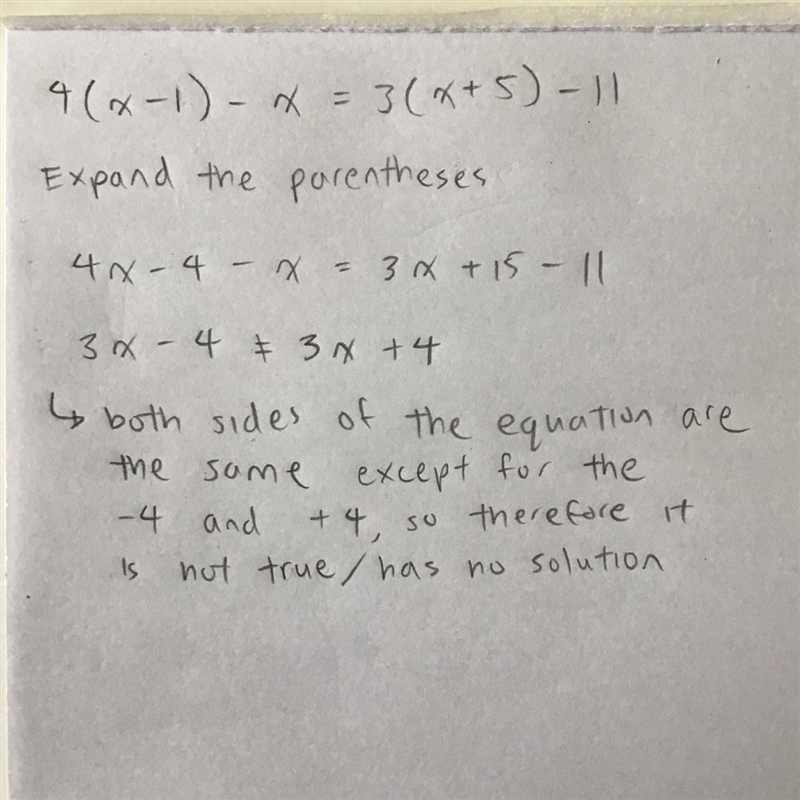 4(x-1) - x = 3(x+5) - 11
Expand the parentheses
4x - 4 - x = 3x + 15 - 11
3x - 4 ≠ 3x + 4
↳ both sides of the equation are
the same except for the
-4 and +4, so therefore it
is not true/has no solution